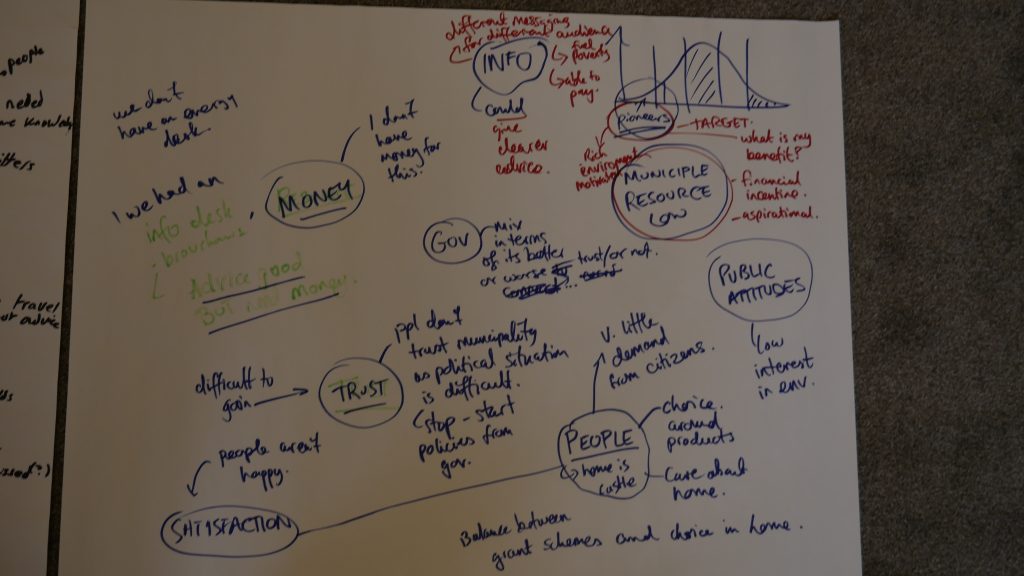 people
needed
we don't
have an energy
desk.
I we had an
info desk
Advice good
MONEY
I don't
have
money for
this!
different messaging
for different audience
INFO
fuel
poverty
able to
pay.
could
give
clearer
advice.
pioneers
TARGET.
what is my
benefit?
Rich
MUNICIPLE
RESOURCE
LOW
financial
incentive.
aspirational.
GOV
mix
in terms
of its better
or worse
trust/or not.
PUBLIC
ATTITUDES
low
interest
in env.
travel
difficult to
gain
TRUST
ppl don't
trust municipality
as political situation
is difficult.
stop-start
policies from
gov.
V. little
demand
from citizens.
PEOPLE
home is
castle
choice
around
products
Care about
home.
people aren't
happy.
SATISFACTION
Balance between
grant schemes and choice in home.